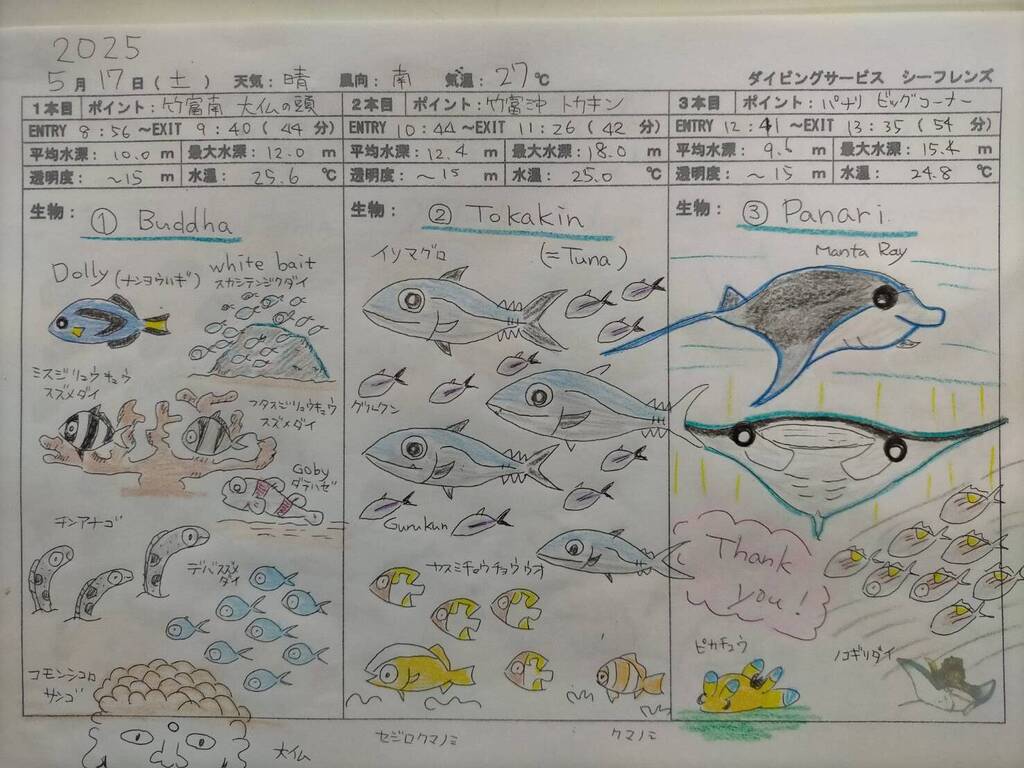 2025
5月17日(土) 天気:晴 風向:南 気温:27℃ ダイビングサービス シーフレンズ
1本目 ポイント:竹富南 大仏の頭
ENTRY 8:56~EXIT 9:40(44分)
平均水深:10.0m 最大水深:12.0m
透明度:~15m 水温:25.6℃
生物:① Buddha
Dolly(ナンヨウハギ)
white bait
スカシテンジクダイ
ミスジリュウキュウ
スズメダイ
フタスジリュウキュウ
スズメダイ
Goby
ダテハゼ
チンアナゴ
デバスズメ
ダイ
コモンシコロ
サンゴ
大仏
2本目 ポイント:竹富沖 トカキン
ENTRY 10:44~EXIT 11:26(42分)
平均水深:12.4m 最大水深:18.0m
透明度:~15m 水温:25.0℃
生物:② Tokakin
イソマグロ (=Tuna)
グルクン
Gurukun
ヤスミチョウチョウウオ
セジロクマノミ
クマノミ
3本目 ポイント:パナリ ビッグコーナー
ENTRY 12:41~EXIT 13:35(54分)
平均水深:9.6m 最大水深:15.4m
透明度:~15m 水温:24.8℃
生物:③ Panari
Manta Ray
Thank
you!
ピカチュウ
ノコギリダイ